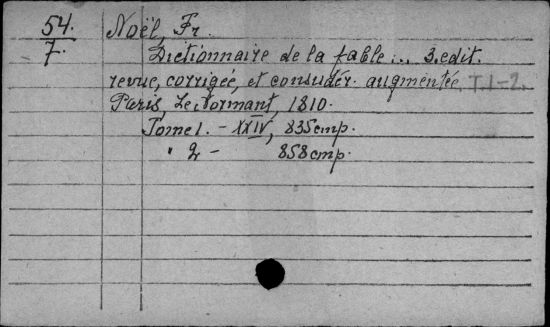 54.
7.
Noël, Fr.
Dictionnaire de la fable... 3. edit.
revue, corrigée, et considér. augmentée, T.1-2.
Paris, Le Normant, 1810.
Tome 1. - XXIV, 835 cmp.
" 2 - 858 cmp.